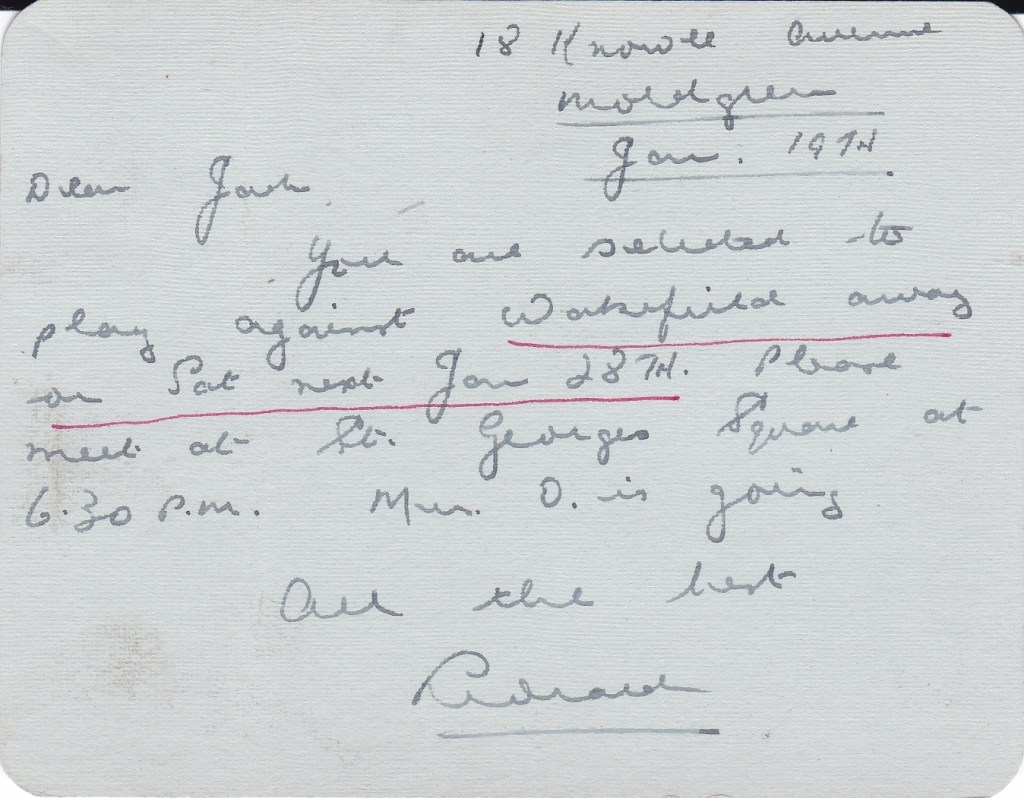 18 Knowle Avenue
Moldgreen
Jan. 19TH.
Dear Jack
You are selected to
play against Wakefield away
on Sat next Jan 28TH. Please
meet at St. Georges Square at
6.30 P.M. Mrs. O. is going
All the best